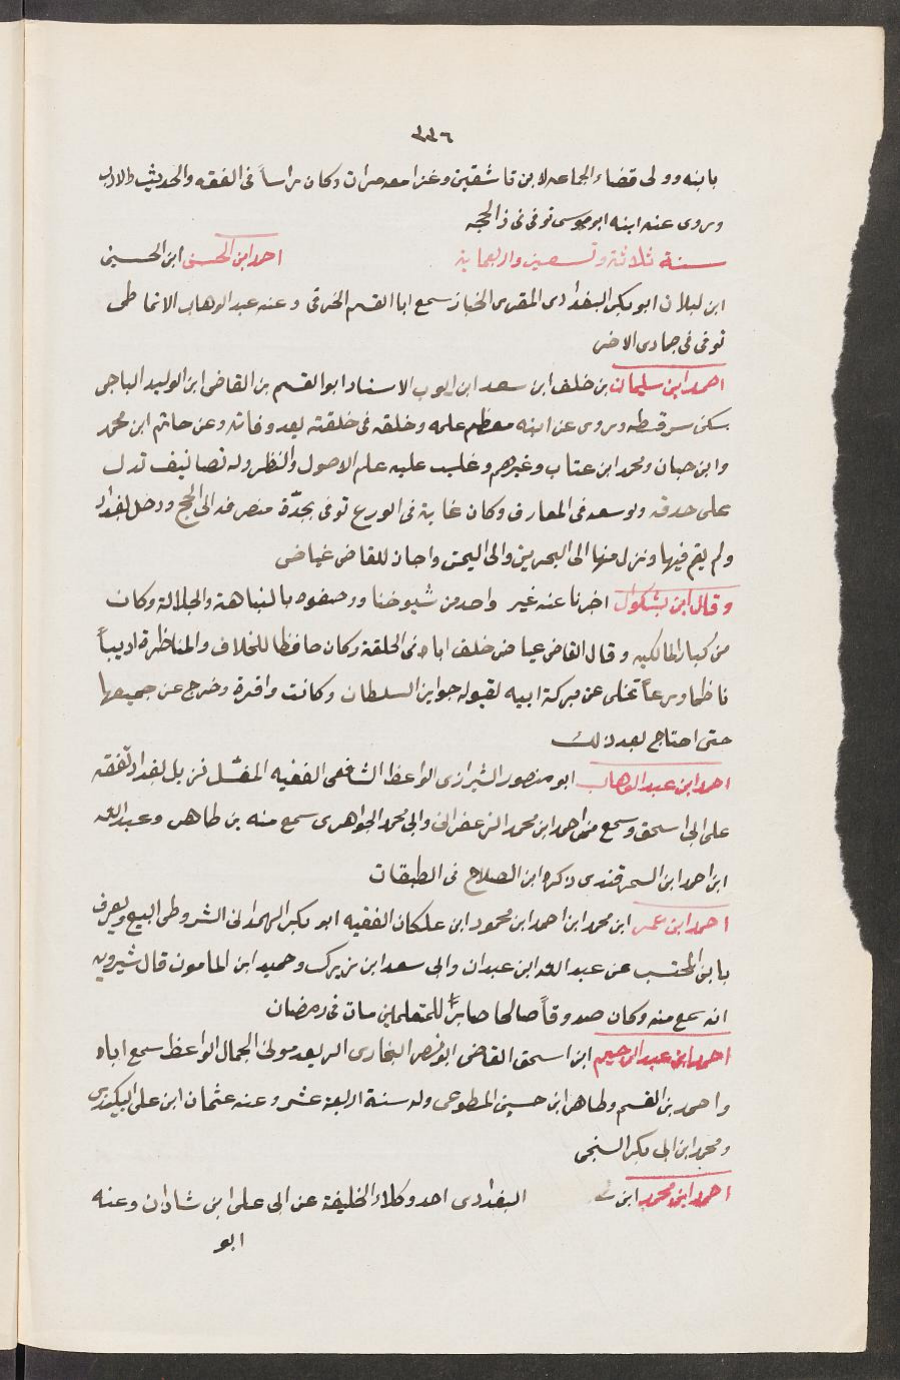 ٣٣٦
بابنه وولى قضاء الجماعه لابن تاشفين وغزا معه مرات وكان راسا فى الفقه والحديث والادب
وروى عنه ابنه ابو موسى توفى فى ذالحجه
سنة ثلاثة وتسعين واربعماية احمد ابن الحسن ابن الحسين
ابن ابو بكر البغدادى المقرى الخباز سمع ابا القسم الخرقى وعنه عبد الوهاب الانماطى
توفى فى جمادى الاخر
احمد ابن سليمان بن خلف ابن سعد ابن ايوب الاستاد ابو القسم بن القاضى ابن الوليد الباجى
سكن سرقسطه وروى عن ابيه معظم علمه وخلفه فى حلقته بعد وفاته وعن حاتم ابن محمد
وابن حيان ومحمد ابن عتاب وغيرهم وغلب عليه علم الاصول والنظر وله تصانيف تدل
على حدقه وتوسعه فى المعارف وكان غاية فى الورع توفى بجدّة منصرفه الى الحج ودخل بغداد
ولم يقم فيها ونزل منها الى البحرين والى اليمن واجاز للقاضى عياض
وقال ابن بشكوال اخبرنا عنه غير واحد من شيوخنا ووصفوه بالنباهة والجلالة وكان
من كبار المالكيه وقال القاضى عياض خلف اباه فى الحلقة وكان حافظا للخلاف والمناظرة اديباً
ناظما ورعاً تخلى عن تركة ابيه لقبوله جوايز السلطان وكانت وافرة وخرج عن جميعها
حتى احتاج بعد ذالك
احمد ابن عبد الوهاب ابو منصور الشيرازى الواعظ الشافعى الفقيه المفسل نزيل بغداد تفقه
على ابى اسحق وسمع من احمد ابن محمد الزعفرانى وابى محمد الجواهرى سمع منه بن طاهر وعبد الله
ابن احمد ابن السمرقندى ذكره ابن الصلاح فى الطبقات
احمد ابن عمر ابن محمد ابن احمد ابن محمود ابن علكان الفقيه ابو بكر الهمدانى الشروطى البيع ويعرف
بابن المحتسب عن عبد الله ابن عبدان وابى سعد ابن زيرك وحميد ابن المامون قال شيرويه
انه سمع منه وكان صدوقاً صالحا صابراً للمتعلمين مات فى رمضان
احمد ابن عبد الرحيم ابن اسحق القاضى ابو نصر البخارى الريغدمونى الجمال الواعظ سمع اباه
واحمد بن القسم وطاهر ابن حسين المطوعى وله سنة اربعة عشر وعنه عثمان ابن على البيكندى
ومحمد ابن ابى بكر السنجى
احمد ابن محمد ابن البغدادى احد وكلاء الخليفة عن ابى على ابن شادان وعنه
ابو